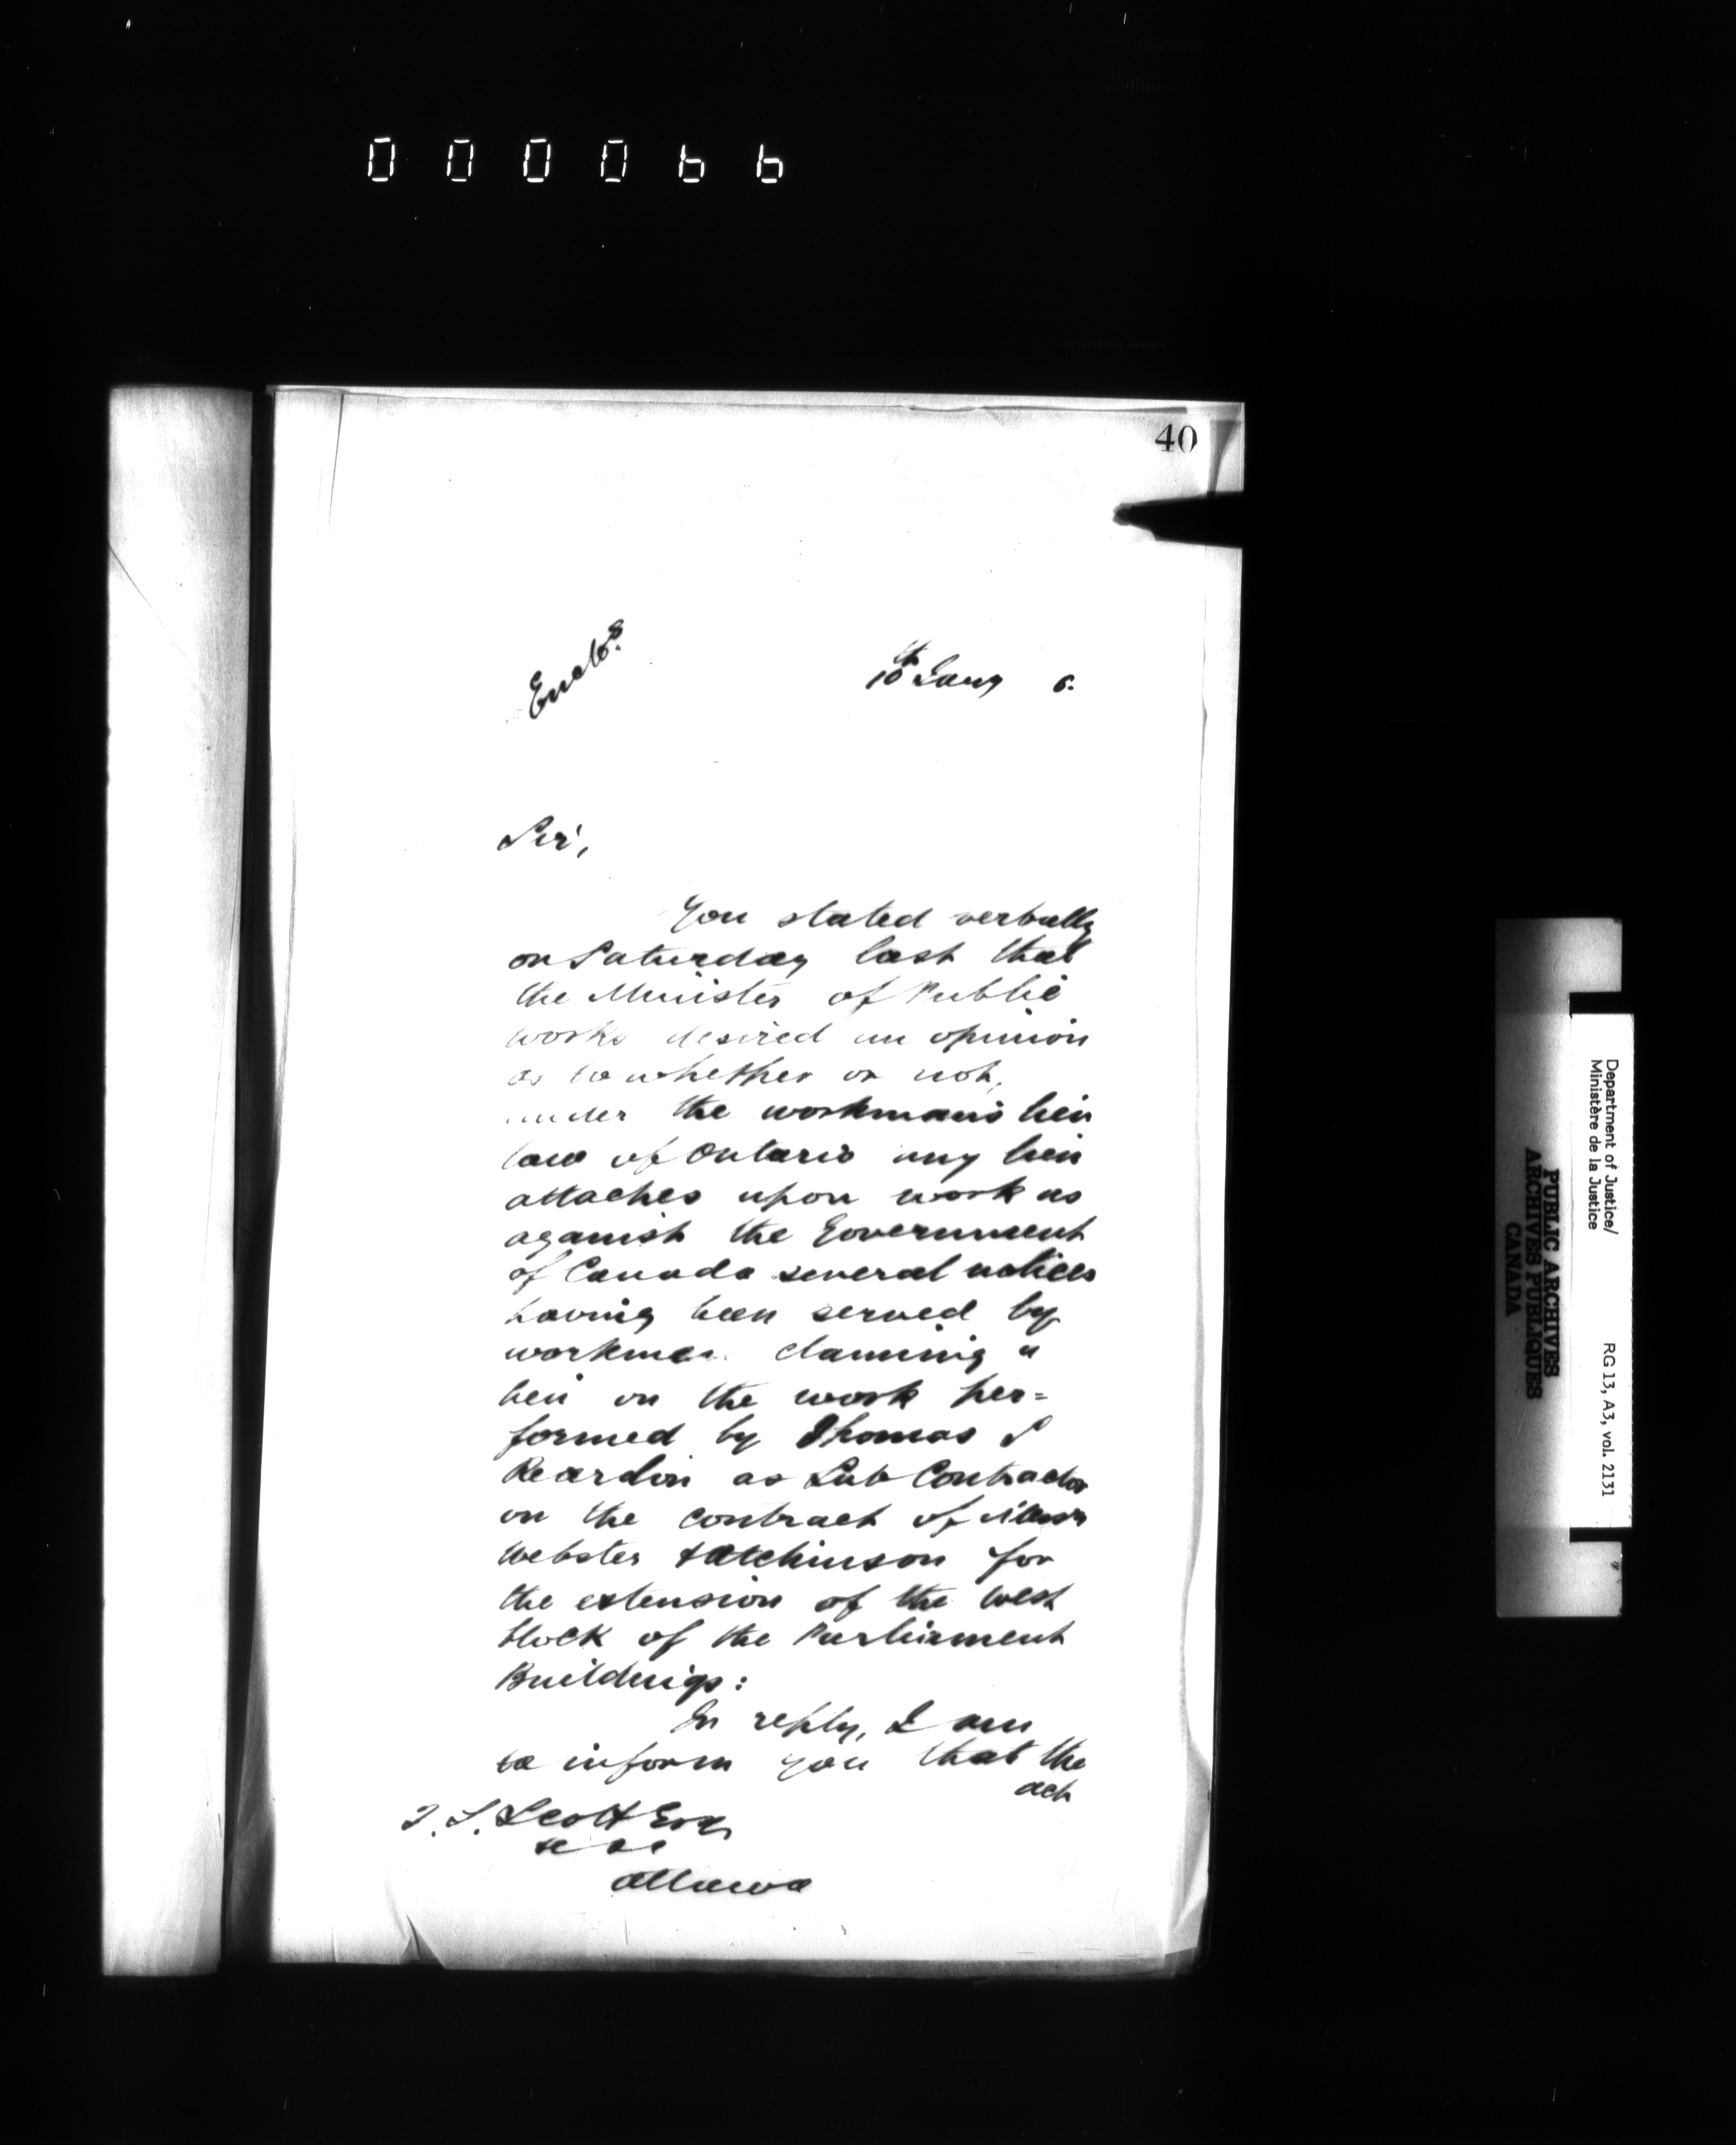 000066
40
Enclos.
10th Jany 6.
Sir,
You stated verbally
on Saturday last that
the Minister of Public
works desired an opinion
as to whether or not,
under the workman's lien
law of Ontario any lien
attaches upon work as
against the Government
of Canada several notices
having been served by
workmen claiming a
lien on the work per=
formed by Thomas
Reardon as Sub Contractor
on the contract of Messrs
Webster & Hutchinson for
the extension of the West
block of the Parliament
Buildings:
In reply, I am
to inform you that the
act
Scott Esq
Ottawa
Department of Justice/
Ministère de la Justice
RG 13, A3, vol. 2131
PUBLIC ARCHIVES
ARCHIVES PUBLIQUES
CANADA